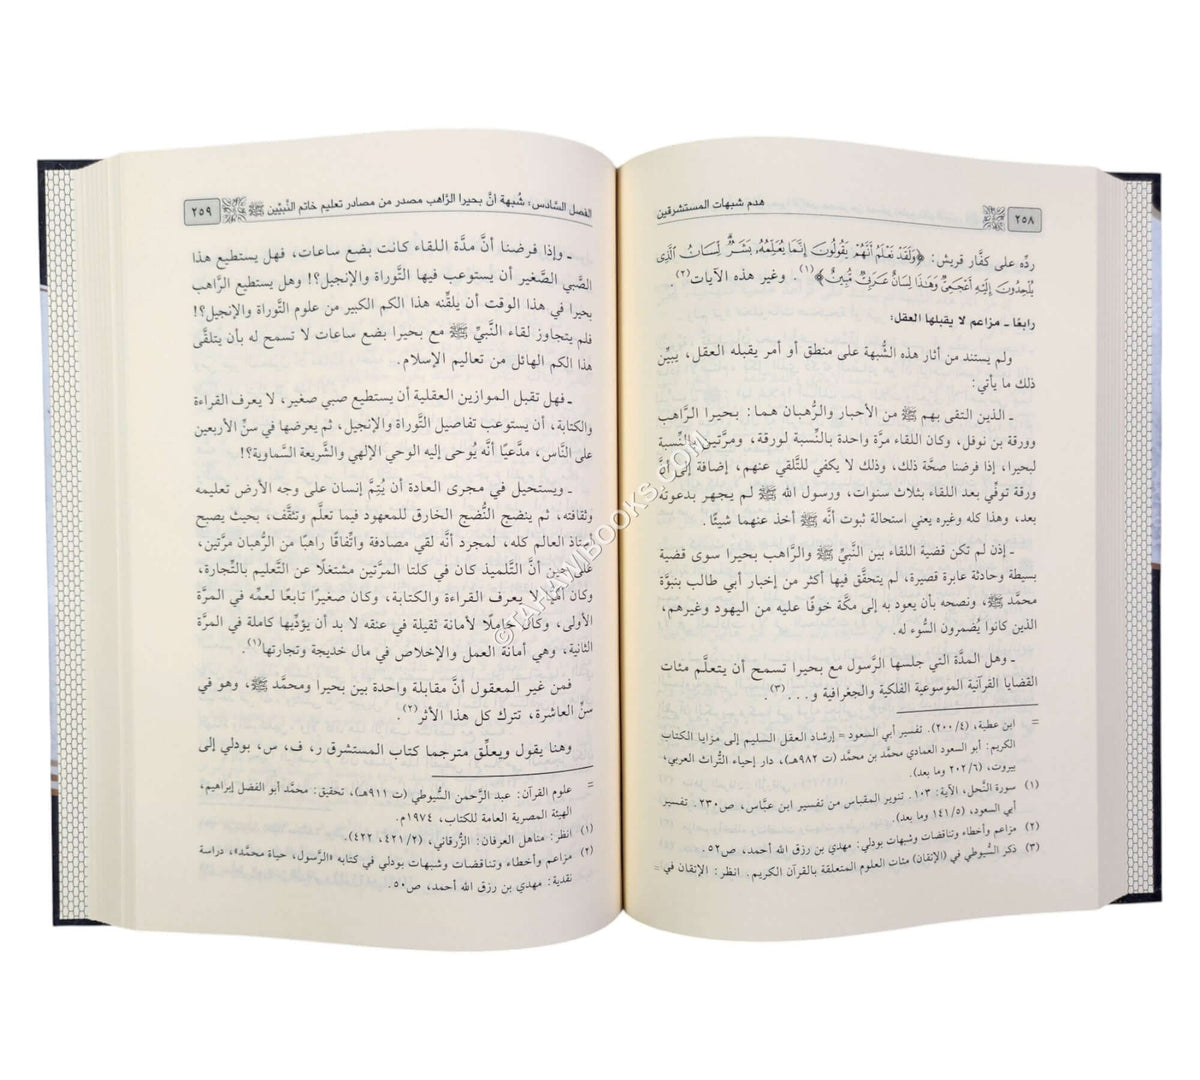 ٢٥٨ هدم شبهات المستشرقين
ردِّه على كفَّار قريش: ﴿وَلَقَدْ نَعْلَمُ أَنَّهُمْ يَقُولُونَ إِنَّمَا يُعَلِّمُهُۥ بَشَرٌ ۗ لِّسَانُ ٱلَّذِى
يُلْحِدُونَ إِلَيْهِ أَعْجَمِىٌّ وَهَٰذَا لِسَانٌ عَرَبِىٌّ مُّبِينٌ﴾(١). وغير هذه الآيات(٢).
رابعًا ـ مزاعم لا يقبلها العقل:
ولم يستند من أثار هذه الشُّبهة على منطق أو أمر يقبله العقل، يبيِّن
ذلك ما يأتي:
ـ الذين التقى بهم ﷺ من الأحبار والرُّهبان هما: بحيرا الرَّاهب
وورقة بن نوفل، وكان اللقاء مرَّة واحدة بالنِّسبة لورقة، ومرَّتين بالنِّسبة
لبحيرا، إذا فرضنا صحَّة ذلك، وذلك لا يكفي للتَّلقي عنهم، إضافة إلى أنَّ
ورقة توفِّي بعد اللقاء بثلاث سنوات، ورسول الله ﷺ لم يجهر بدعوته
بعد، وهذا كله وغيره يعني استحالة ثبوت أنَّه ﷺ أخذ عنهما شيئًا.
ـ إذن لم تكن قضية اللقاء بين النَّبيِّ ﷺ والرَّاهب بحيرا سوى قضية
بسيطة وحادثة عابرة قصيرة، لم يتحقَّق فيها أكثر من إخبار أبي طالب بنبوَّة
محمَّد ﷺ، ونصحه بأن يعود به إلى مكَّة خوفًا عليه من اليهود وغيرهم،
الذين كانوا يُضمرون السُّوء له.
ـ وهل المدَّة التي جلسها الرَّسول مع بحيرا تسمح أن يتعلَّم مئات
القضايا القرآنية الموسوعية الفلكية والجغرافية و...(٣).
= ابن عطية، (٢٠٠/٤). تفسير أبي السعود = إرشاد العقل السليم إلى مزايا الكتاب
الكريم: أبو السعود العمادي محمَّد بن محمَّد (ت ٩٨٢هـ)، دار إحياء التُّراث العربي،
بيروت، (٢٠٢/٦ وما بعد).
(١) سورة النَّحل، الآية: ١٠٣. تنوير المقباس من تفسير ابن عبَّاس، ص٢٣٠. تفسير
أبي السعود، (١٤١/٥ وما بعد).
(٢) مزاعم وأخطاء وتناقضات وشبهات بودلي: مهدي بن رزق الله أحمد، ص٥٢.
(٣) ذكر السُّيوطي في (الإتقان) مئات العلوم المتعلقة بالقرآن الكريم. انظر: الإتقان في =
الفصل السَّادس: شُبهة أنَّ بحيرا الرَّاهب مصدر من مصادر تعليم خاتم النَّبيِّين ﷺ ٢٥٩
ـ وإذا فرضنا أنَّ مدَّة اللقاء كانت بضع ساعات، فهل يستطيع هذا
الصَّبي الصَّغير أن يستوعب فيها التَّوراة والإنجيل؟! وهل يستطيع الرَّاهب
بحيرا في هذا الوقت أن يلقِّنه هذا الكم الكبير من علوم التَّوراة والإنجيل؟!
فلم يتجاوز لقاء النَّبيِّ ﷺ مع بحيرا بضع ساعات لا تسمح له بأن يتلقَّى
هذا الكم الهائل من تعاليم الإسلام.
ـ فهل تقبل الموازين العقلية أن يستطيع صبي صغير، لا يعرف القراءة
والكتابة، أن يستوعب تفاصيل التَّوراة والإنجيل، ثم يعرضها في سنِّ الأربعين
على النَّاس، مدَّعيًا أنَّه يُوحى إليه الوحي الإلهي والشَّريعة السَّماوية؟!
ـ ويستحيل في مجرى العادة أن يُتِمَّ إنسان على وجه الأرض تعليمه
وثقافته، ثم ينضج النُّضج الخارق للمعهود فيما تعلَّم وتثقَّف، بحيث يصبح
أستاذ العالم كله، لمجرد أنَّه لقي مصادفة واتِّفاقًا راهبًا من الرُّهبان مرَّتين،
على حين أنَّ التِّلميذ كان في كلتا المرَّتين مشتغلًا عن التَّعليم بالتِّجارة،
وكان أميًّا لا يعرف القراءة والكتابة، وكان صغيرًا تابعًا لعمِّه في المرَّة
الأولى، وكان حاملًا لأمانة ثقيلة في عنقه لا بد أن يؤدِّيها كاملة في المرَّة
الثانية، وهي أمانة العمل والإخلاص في مال خديجة وتجارتها(١).
فمن غير المعقول أنَّ مقابلة واحدة بين بحيرا ومحمَّد ﷺ، وهو في
سنِّ العاشرة، تترك كل هذا الأثر(٢).
وهنا يقول ويعلِّق مترجما كتاب المستشرق ر، ف، س، بودلي إلى
= علوم القرآن: عبد الرَّحمن السُّيوطي (ت ٩١١هـ)، تحقيق: محمَّد أبو الفضل إبراهيم،
الهيئة المصرية العامة للكتاب، ١٩٧٤م.
(١) انظر: مناهل العرفان: الزُّرقاني، (٤٢١/٢، ٤٢٢).
(٢) مزاعم وأخطاء وتناقضات وشبهات بودلي في كتابه «الرَّسول، حياة محمَّد»، دراسة
نقدية: مهدي بن رزق الله أحمد، ص٥٠.
©TAHAWIBOOKS.COM